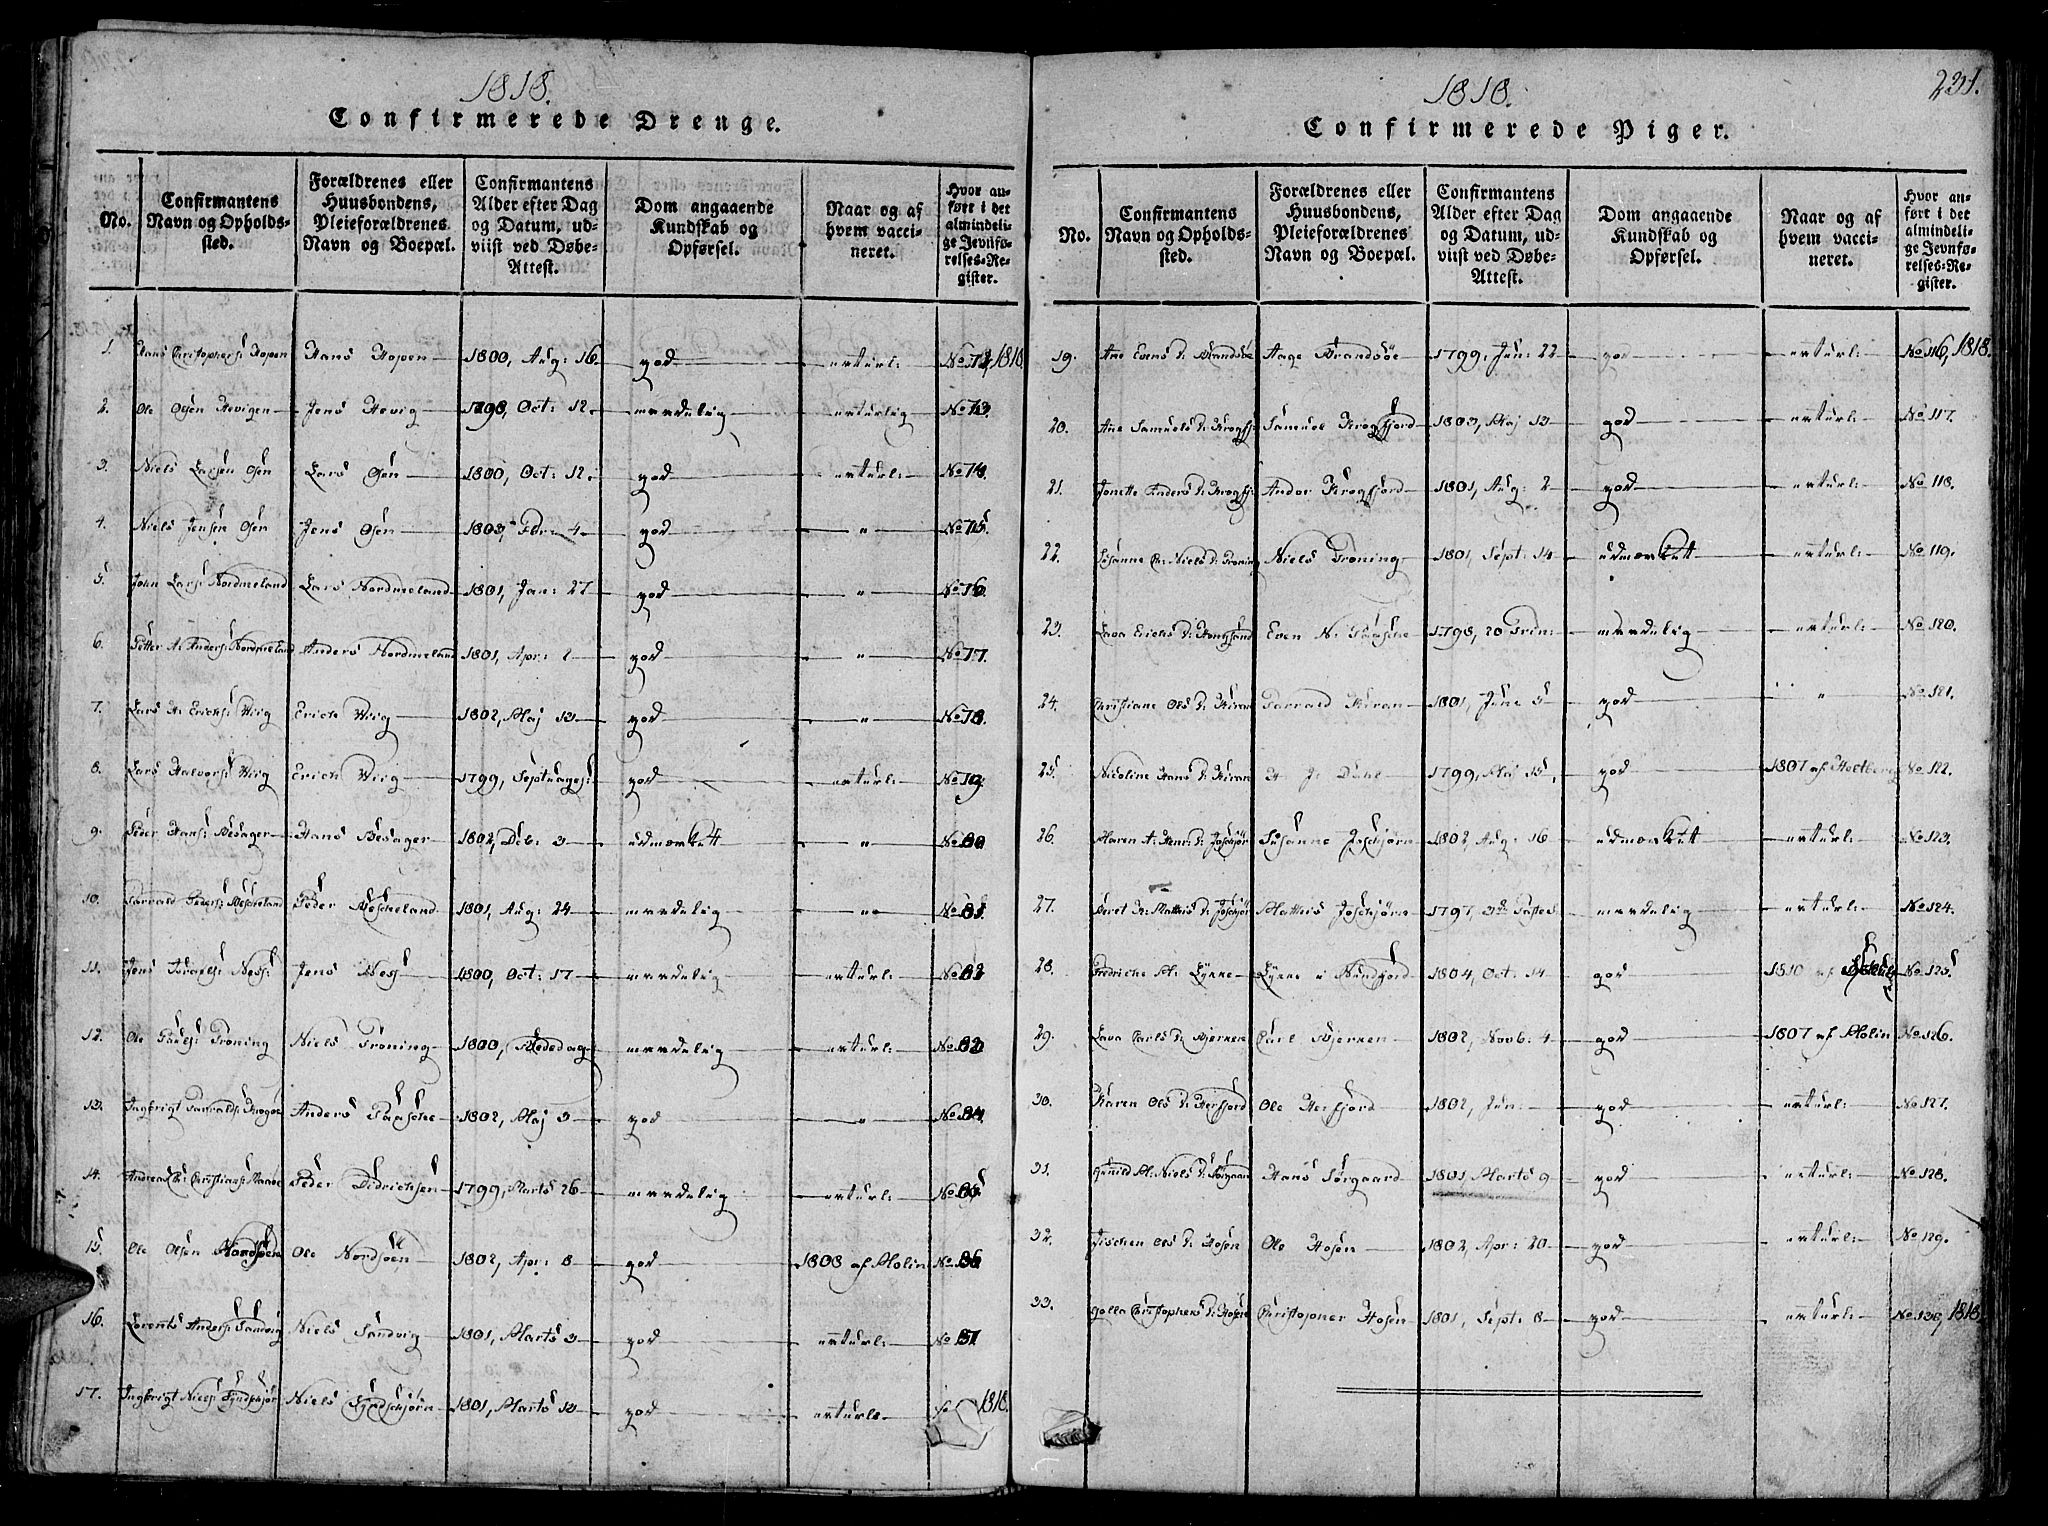 1818.
Confirmerede Drenge.
No.
Confirmantens Navn og Opholds-sted.
Forældrenes eller Huusbondens, Pleieforældrenes Navn og Boepæl.
Confirmantens Alder efter Dag og Datum, ud-viist ved Døbe-Attest.
Dom angaaende Kundskab og Opførsel.
Naar og af hvem vacci-neret.
Hvor an-ført i det almindeli-ge Jevnfø-relses-Re-gister.
1. Hans Christophers: Hopen Hans Hopen 1800, Aug: 16. god naturl: 1818.
2. Ole Osen Hevigen Jens Hevig 1798, Oct: 12. maadelig naturlig
3. Niels Larsen Osen Lars Osen 1800, Oct: 12. god naturl: No 74.
4. Niels Jensen Osen Jens Osen 1803, Febr: 4 god " No 75
5. John Lars: Nordmeland Lars Nordmeland 1801, Jan: 27 god " No 76.
6. Petter A: Anders: Nordmeland Anders Nordmeland 1801, Apr: 2 god " No 77.
7. Lars H: Erichs: Vrig Erich Vrig 1802, Maj 13 god " No 78.
8. Lars Halvors: Vrig Erich Vrig 1799, Septuages: god naturl:
9. Peder Hans: Besager Hans Besager 1802, Deb: 3 udmærkett "
10. Parrald Peders: Bescheland Peder Bescheland 1801, Aug: 24 maadelig "
11. Jens Ness: Jens Ness 1800, Oct: 17 maadelig naturl:
12. Ole Pauls: Trøning Niels Trøning 1800, Bededag maadelig naturl:
13. Ingbrigt Parralds: Anders Paasche 1802, Maj 3 god "
14. Andreas Chr: Christians: Peder Didrichsen 1799, Marts 26 maadelig naturl:
15. Ole Olsen Nordsøen Ole Nordsøen 1802, Apr: 8 god 1808 af Molin
16. Lorents Anders: Sandvig Niels Sandvig 1801, Marts 3 god naturl:
17. Ingbrigt Niels: Niels 1801, Marts 13 god naturl: 1818.
1818.
231.
Confirmerede Piger.
No.
Confirmantens Navn og Opholds-sted.
Forældrenes eller Huusbondens, Pleieforældrenes Navn og Boepæl.
Confirmantens Alder efter Dag og Datum, ud-viist ved Døbe-Attest.
Dom angaaende Kundskab og Opførsel.
Naar og af hvem vacci-neret.
Hvor an-ført i det almindeli-ge Jevnfø-relses-Re-gister.
19. Ane Evens D: Brandsøe Aage Brandsøe 1799, Jun: 22 god naturl: No 116, 1818.
20. Ane Samuels D: Krogfj: Samuel Krogfjord 1803, Maj 13 god naturl: No 117.
21. Jonette Anders D: Krogfj: Andor Krogfjord 1801, Aug: 2 god naturl: No 118.
22. Susanne Chr: Niels D: Trøning Niels Trøning 1801, Sept: 14 udmærkett naturl: No 119.
23. Lava Erichs D: Even N: Paasche 1798, 20 Trin: maadelig naturl: No 120.
24. Christiane Ols D: Kiran Parrald Kiran 1801, June 5 god " No 121.
25. Nicoline Hans D: Kiran H: J: Dahl 1799, Maj 15, god 1807 af Holtberg No 122.
26. Maren A: Henr: D: Joschjør Susanne Joschjørn 1802, Aug: 16 udmærkett naturl: No 123.
27. Beret K: Matthis D: Joschjør Matthis Joschjørn 1797, 3d: Paster maadelig naturl: No 124.
28. Fredriche M: Lykke Lykke i Nundfjord 1804, Oct: 14 god 1810 af No 125
29. Lava Carls D: Bjerken Carl Bjerken 1802, Novb: 4 god 1807 af Molin No 126.
30. Karen Ols D: Herfjord Ole Herfjord 1802, Jun: god naturl: No 127.
31. Gunild M: Niels D: Sørgaard Hans Sørgaard 1801, Marts 9 god naturl: No 128.
32. Gischen Ols D: Hosen Ole Hosen 1802, Apr: 20 god naturl: No 129.
33. Golla Christophers D: Hosen Christopher Hosen 1801, Sept: 8 god naturl: No 130, 1818